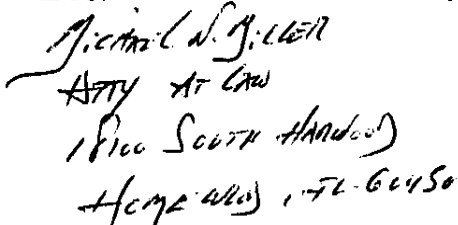 Michael W. Miller
Atty At Law
18100 South Harwood
Homewood, IL 60430